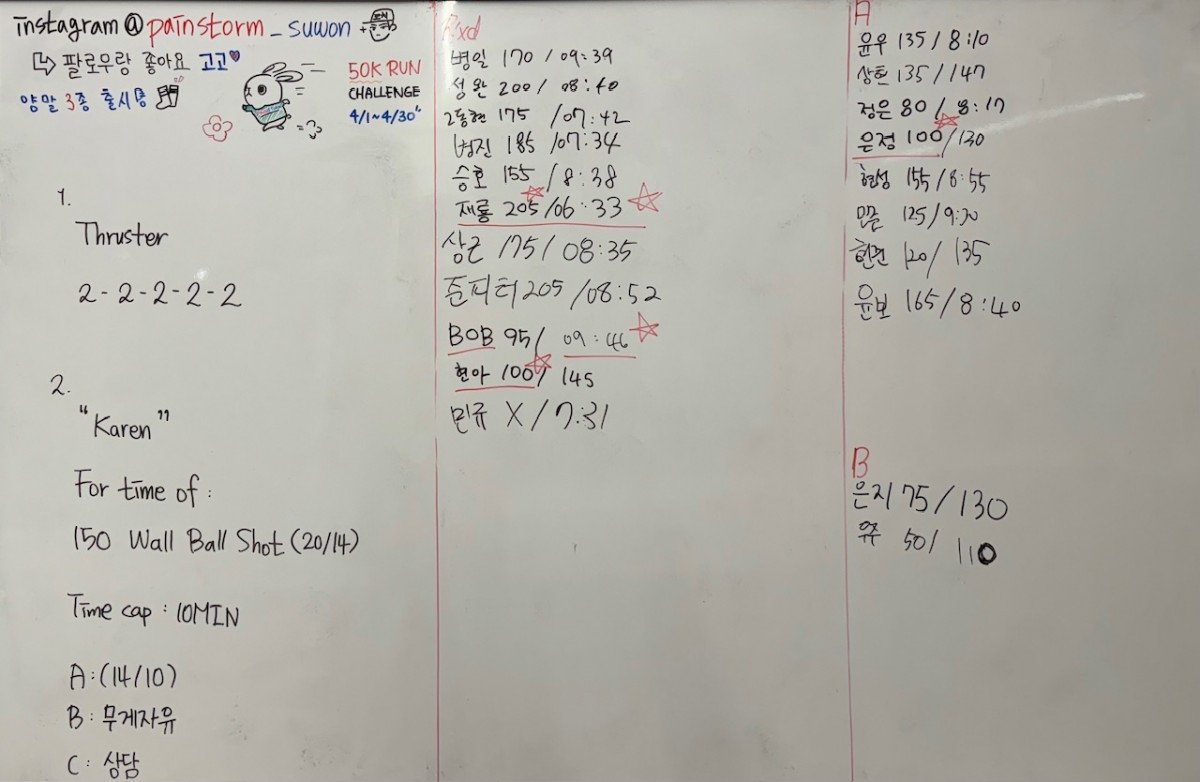 instagram@painstorm_suwon
↳ 팔로우랑 좋아요 고고♥
양말 3종 출시
50K RUN
CHALLENGE
4/1~4/30"
1.
Thruster
2-2-2-2-2
2.
"Karen"
For time of :
150 Wall Ball Shot (20/14)
Time cap : 10MIN
A : (14/10)
B : 무게자유
C : 상담
R'xd
병일 170 / 09:39
성완 200 / 08:40
2동현 175 / 07:42
병진 185 / 07:34
승호 155 / 8:38
재룡 205 / 06:33
상근 175 / 08:35
준피터 205 / 08:52
BOB 95 / 09:46
현아 100 / 145
민규 X / 7:31
A
윤우 135 / 8:10
상현 135 / 147
정은 80 / 8:17
은정 100 / 130
현성 155 / 8:55
125 / 9:30
120 / 135
윤보 165 / 8:40
B
은지 75 / 130
50 / 110